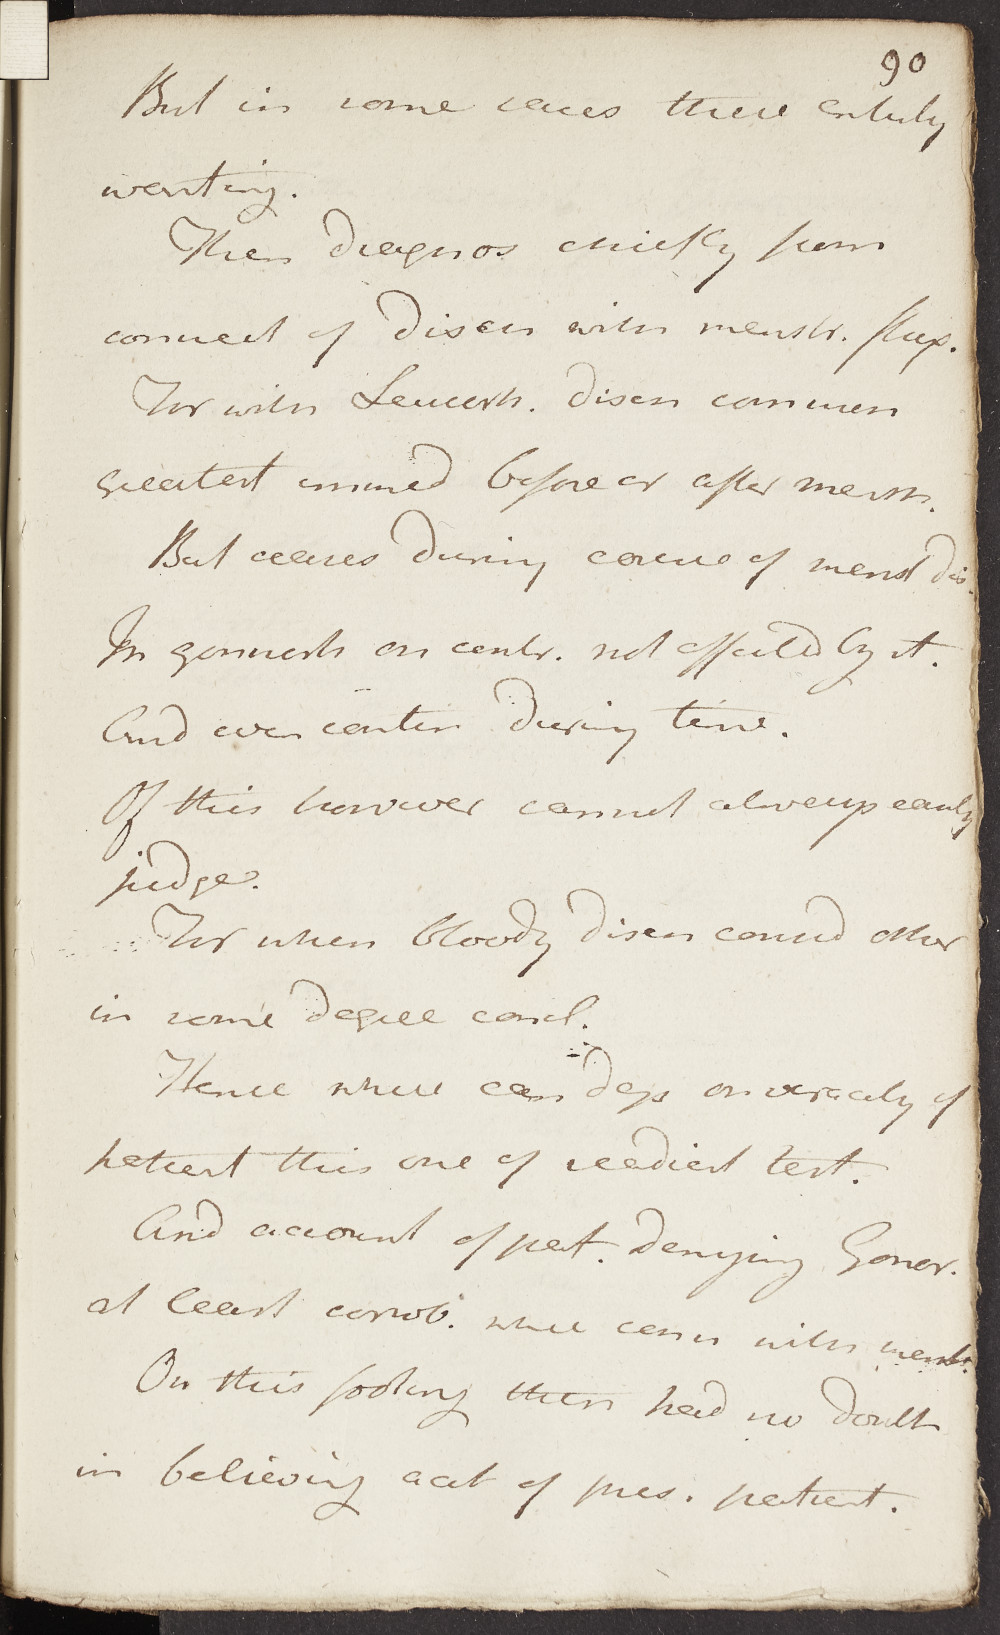 90
But in some cases these entirely
wanting.
Then Diagnos chiefly from
connect of Disch with menstr. flux.
For with Leucorh. disch common
greatest immed before or after menstr.
But ceases During course of menst dis.
In gonnorh on contr. not affected by it.
And even contin During time.
Of this however cannot always easily
judge.
For when bloody disch conceal other
in some degree conceal.
Hence where can Dep on veracity of
patient this one of readiest test.
And account of pat. Denying Gonor.
at least corrob. where conn with menstr.
On this footing then had no doubt
in believing acct of pres. patient.